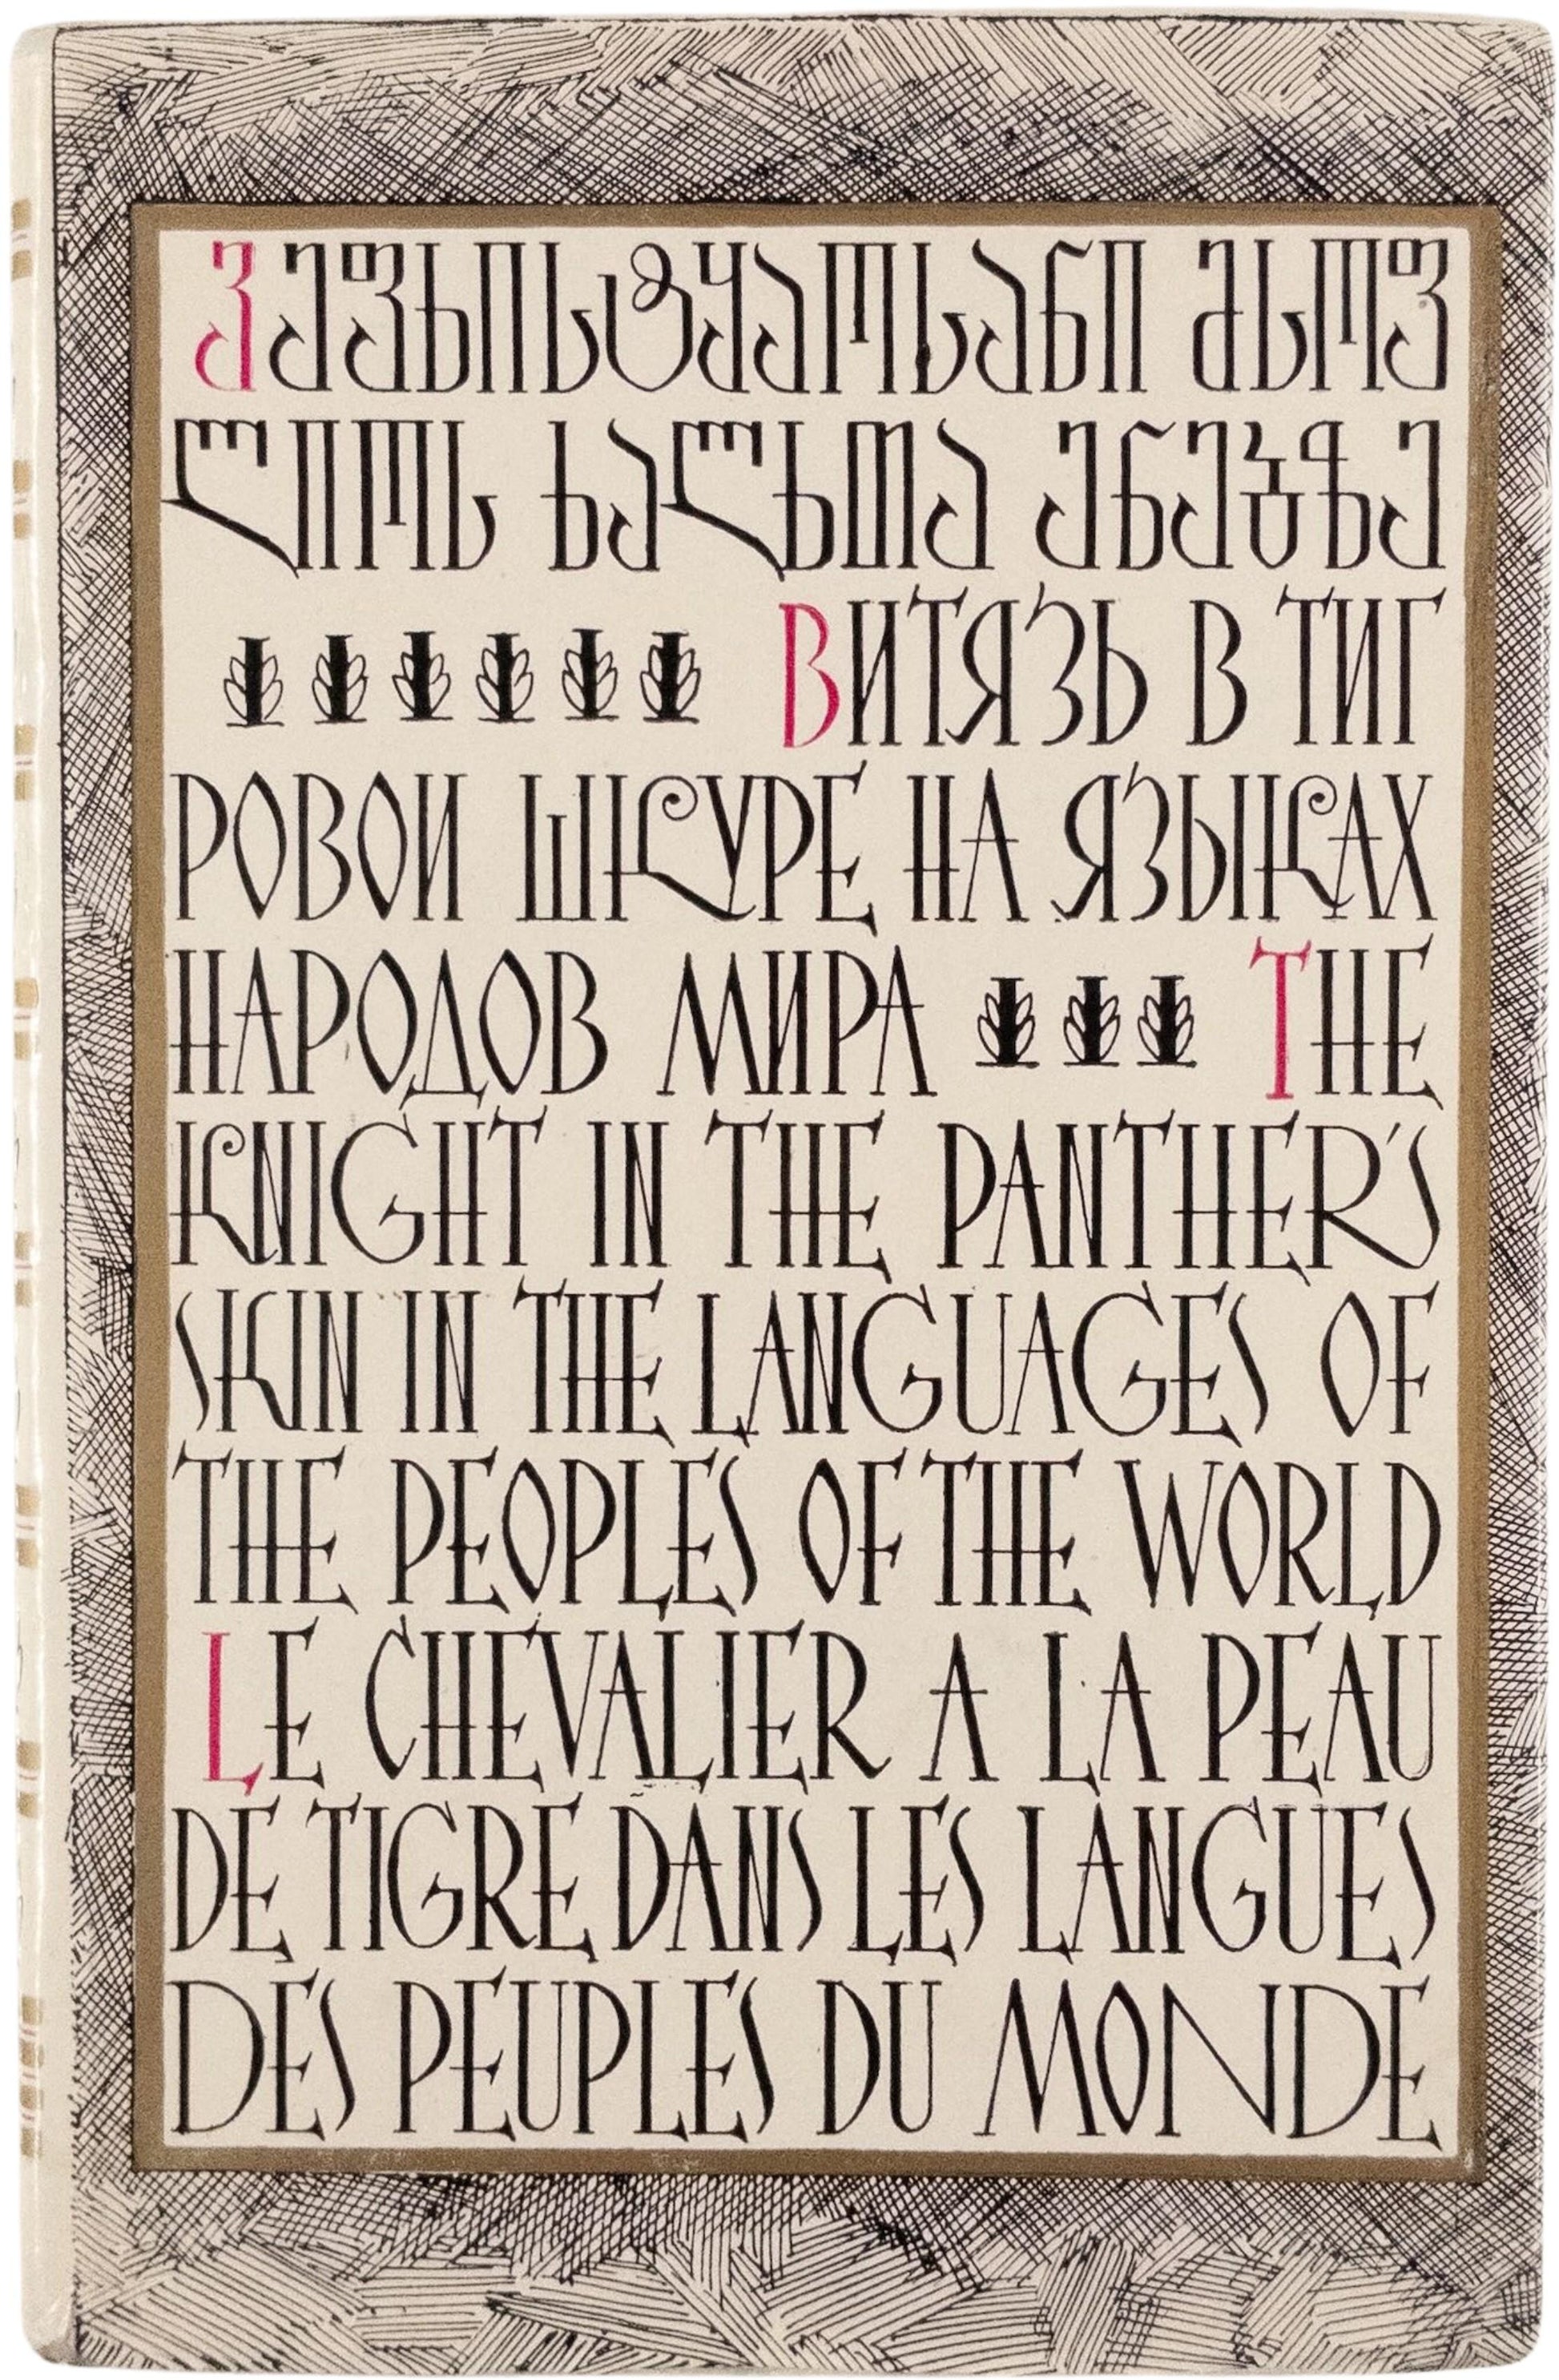 ვეფხისტყაოსანი მსოფ
ლიოს ხალხთა ენებზე
ВИТЯЗЬ В ТИГ
РОВОЙ ШКУРЕ НА ЯЗЫКАХ
НАРОДОВ МИРА THE
KNIGHT IN THE PANTHER'S
SKIN IN THE LANGUAGES OF
THE PEOPLES OF THE WORLD
LE CHEVALIER A LA PEAU
DE TIGRE DANS LES LANGUES
DES PEUPLES DU MONDE